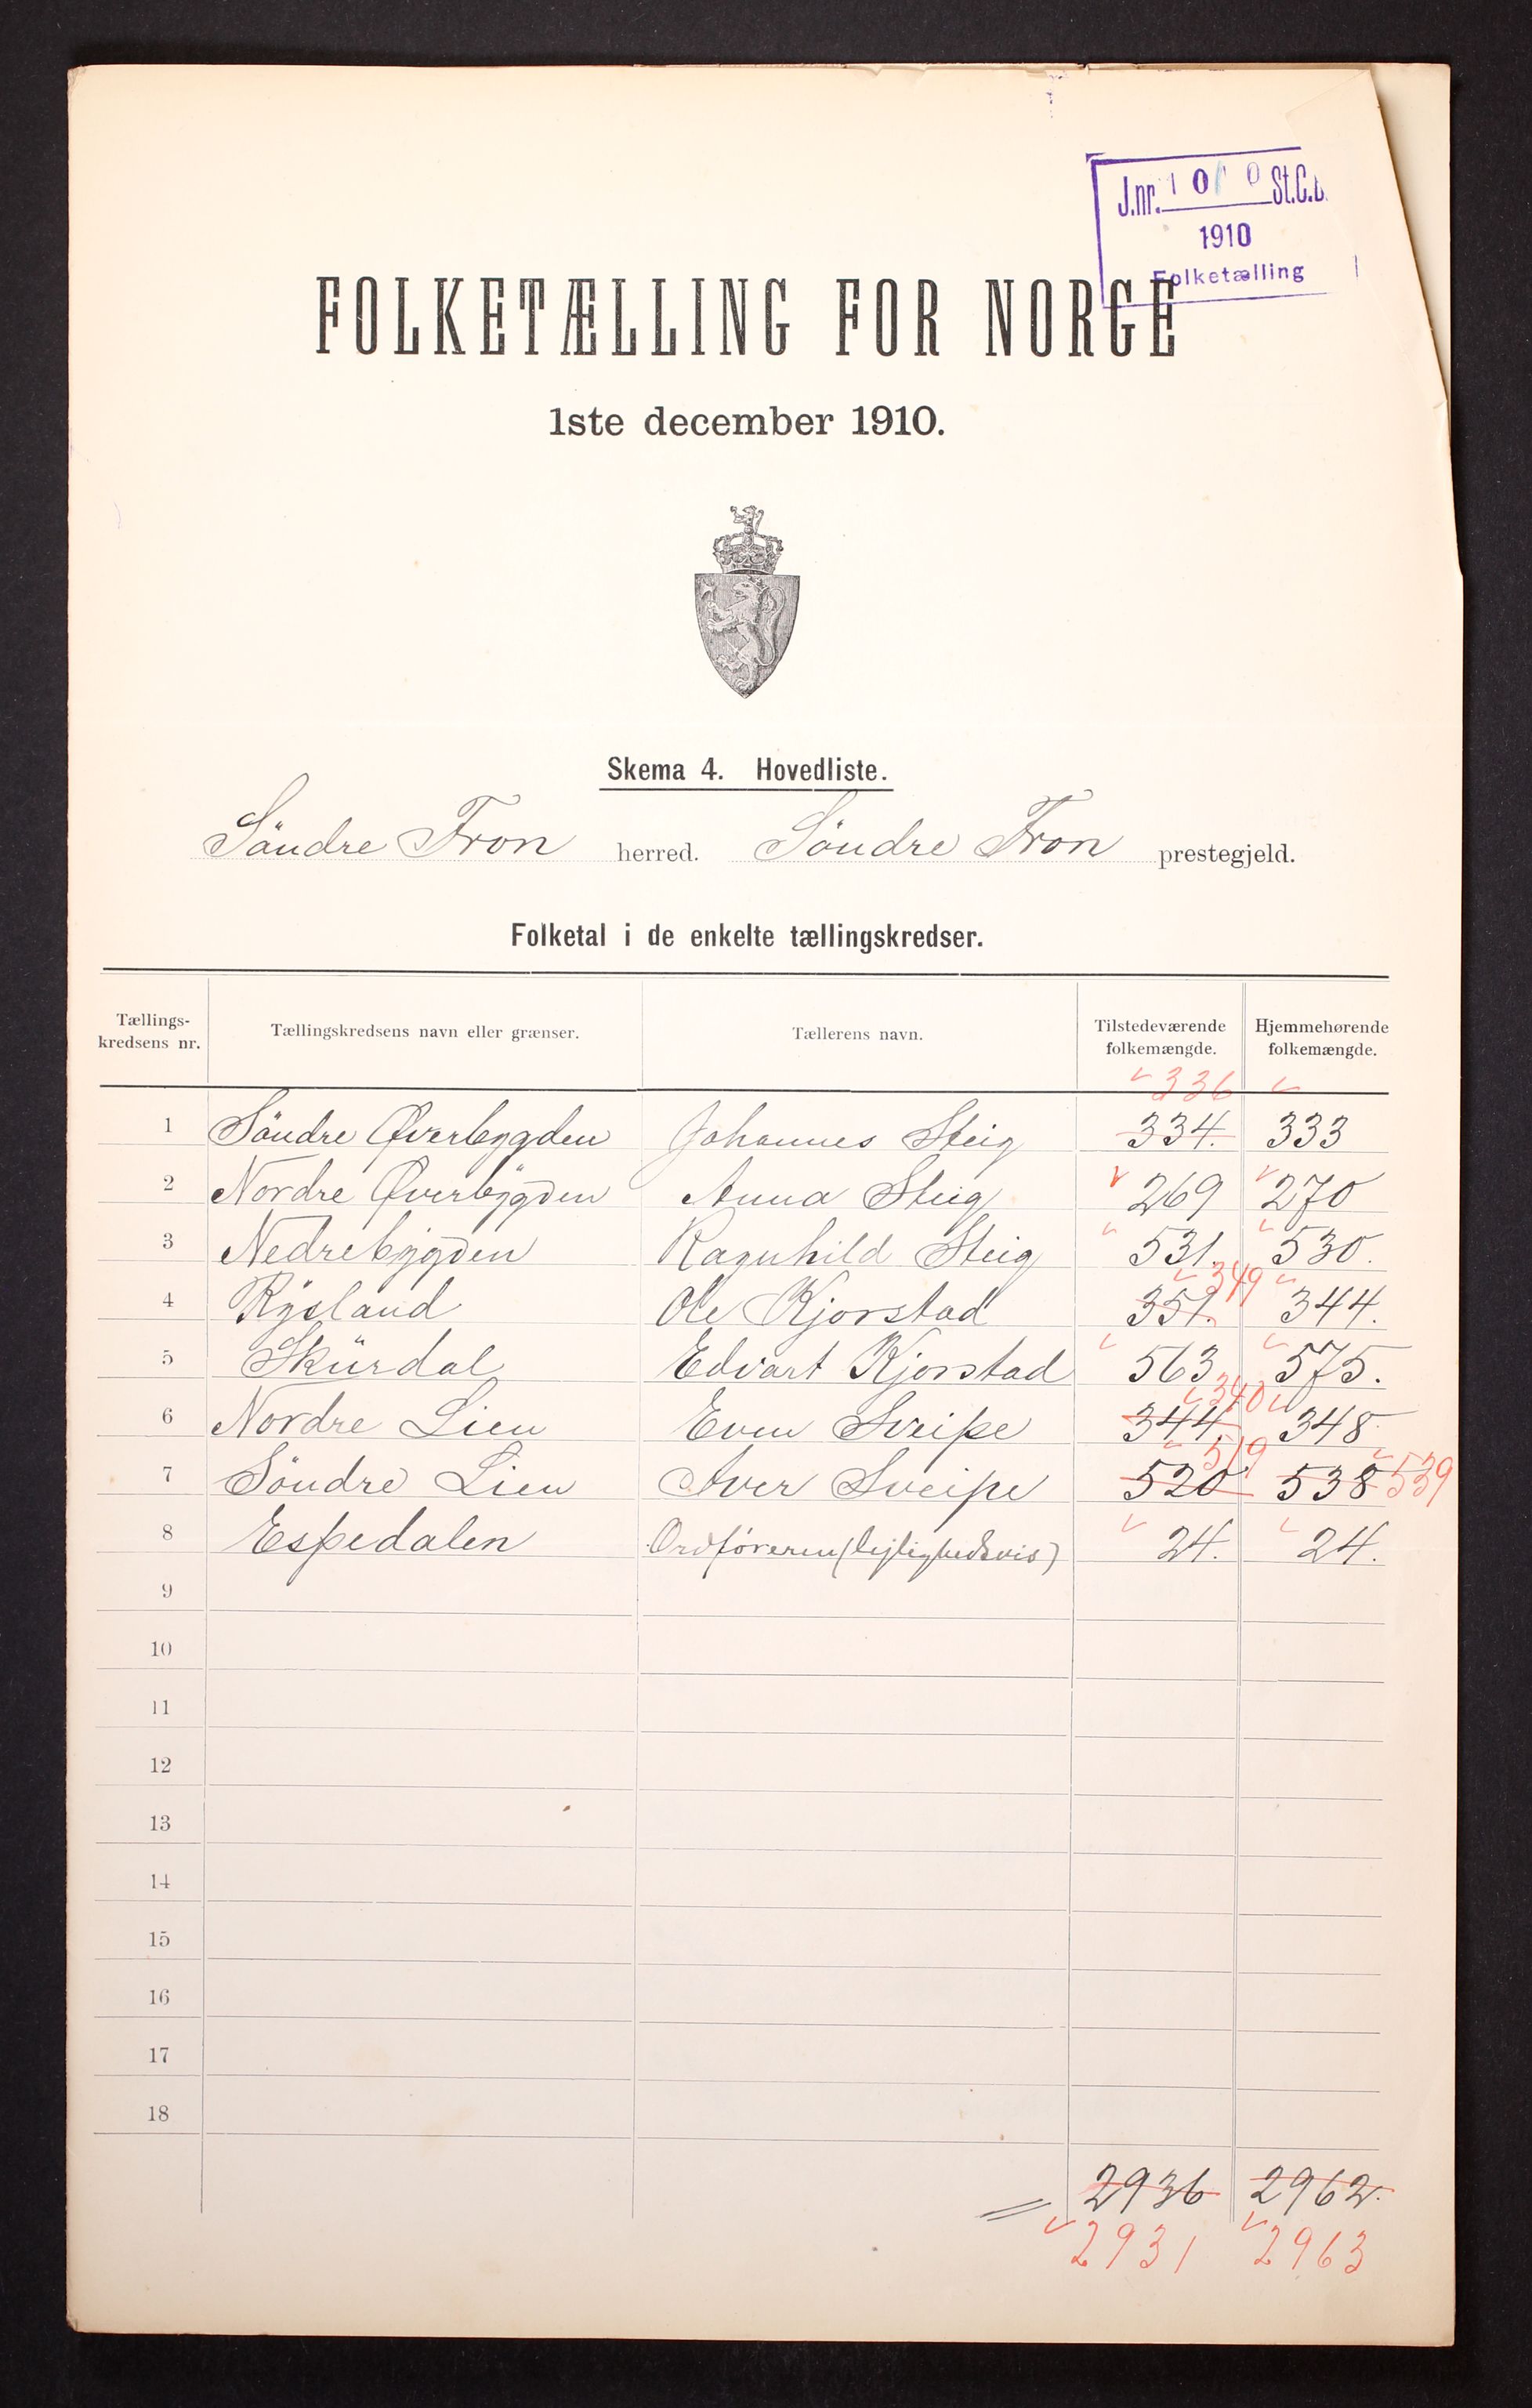 J.nr. 10 0 St.C.b.
1910
Folketælling
FOLKETÆLLING FOR NORGE
1ste december 1910.
Skema 4. Hovedliste.
Söndre Fron herred. Söndre Fron prestegjeld.
Folketal i de enkelte tællingskredser.
Tællings-
kredsens nr.
Tællingskredsens navn eller grænser.
Tællerens navn.
Tilstedeværende
folkemængde.
Hjemmehørende
folkemængde.
336
1 Söndre Øverbygden Johannes Steig 334. 333
2 Nordre Øverbygden Anna Steig 269 270
3 Nedrebygden Ragnhild Steig 531. 530.
349
4 Rysland Ole Kjorstad 351. 344.
5 Skurdal Edvart Kjorstad 563 575.
340
6 Nordre Lien Even Sveipe 344 348
519
7 Söndre Lien Iver Sveipe 520 538 539
8 Espedalen Ordföreren (lejlighedsvis) 24. 24.
9
10
11
12
13
14
15
16
17
18
= 2936 2962.
2931 2963